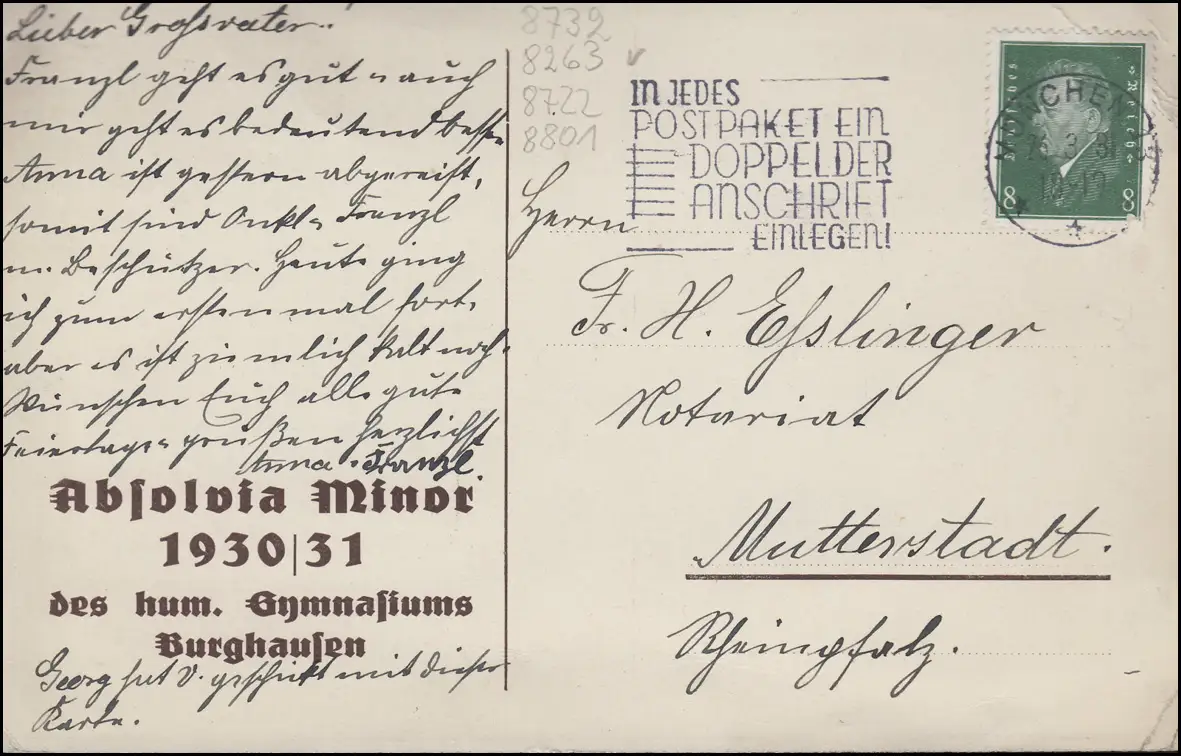 Lieber Grossvater!
Franzl geht es gut u. auch
mir geht es bedeutend besser.
Anna ist gestern abgereist,
somit sind Onkl u. Franzl
m. Beschützer. Heute ging
ich zum erstenmal fort,
aber es ist ziemlich kalt noch.
Wünschen Euch alle gute
Feiertage u. grüßen herzlichst
Anna u. Franzl.
Abſolvia Minor
1930/31
des hum. Gymnaſiums
Burghauſen
Georg hat geschickt mit dieser
Karte.
8739
8263
8722
8801
IN JEDES
POSTPAKET EIN
DOPPEL DER
ANSCHRIFT
EINLEGEN!
MÜNCHEN
3. 31
Deutsches Reich
8 8
Herrn
Fr. H. Esslinger
Notariat
Mutterstadt.
Rheinpfalz.